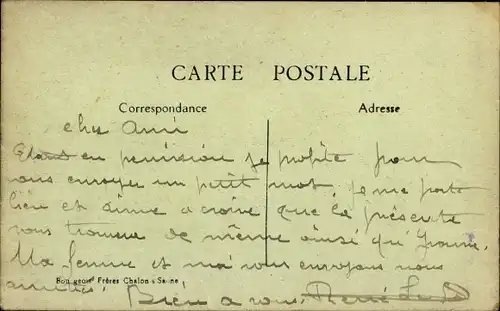 CARTE POSTALE
Correspondance
Adresse
cher Ami
Etant en permission je profite pour
vous envoyer un petit mot, je me porte
bien et aime a croire que la présente
vous trouve de même ainsi qu'Yvonne.
Ma femme et moi vous envoyons nous
amitiés. Bien a vous. René
Bourgeois Frères Chalon s Saône